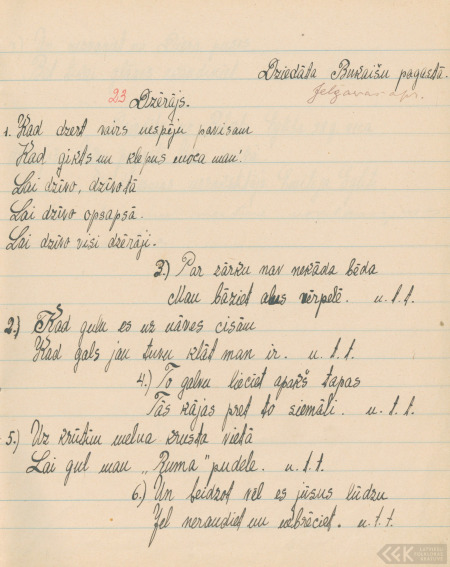 Dziedāta Bukaišu pagastā.
Jelgavas apr.
23 Dzērājs.
1. Kad dzert vairs nespēju pavisam
Kad gikts un klepus moca man!
Lai dzīvo, dzīvotā
Lai dzīvo opsapsā.
Lai dzīvo visi dzērāji.
3.) Par zārku nav nekāda bēda
Man bāziet alus vērpelē. u. t. t.
2.) Kad gulu es uz nāves cisām
Kad gals jau tuvu klāt man ir. u. t. t.
4.) To galvu lieciet apakš tapas
Tās kājas pret to siemāli. u. t. t.
5.) Uz krūtīm melna krusta vietā
Lai gul man „Ruma" pudele. u. t. t.
6.) Un beidzot vēl es jūsus lūdzu
Jel neraudiet un nebrēciet. u. t. t.
LATVIEŠU FOLKLORAS KRĀTUVE